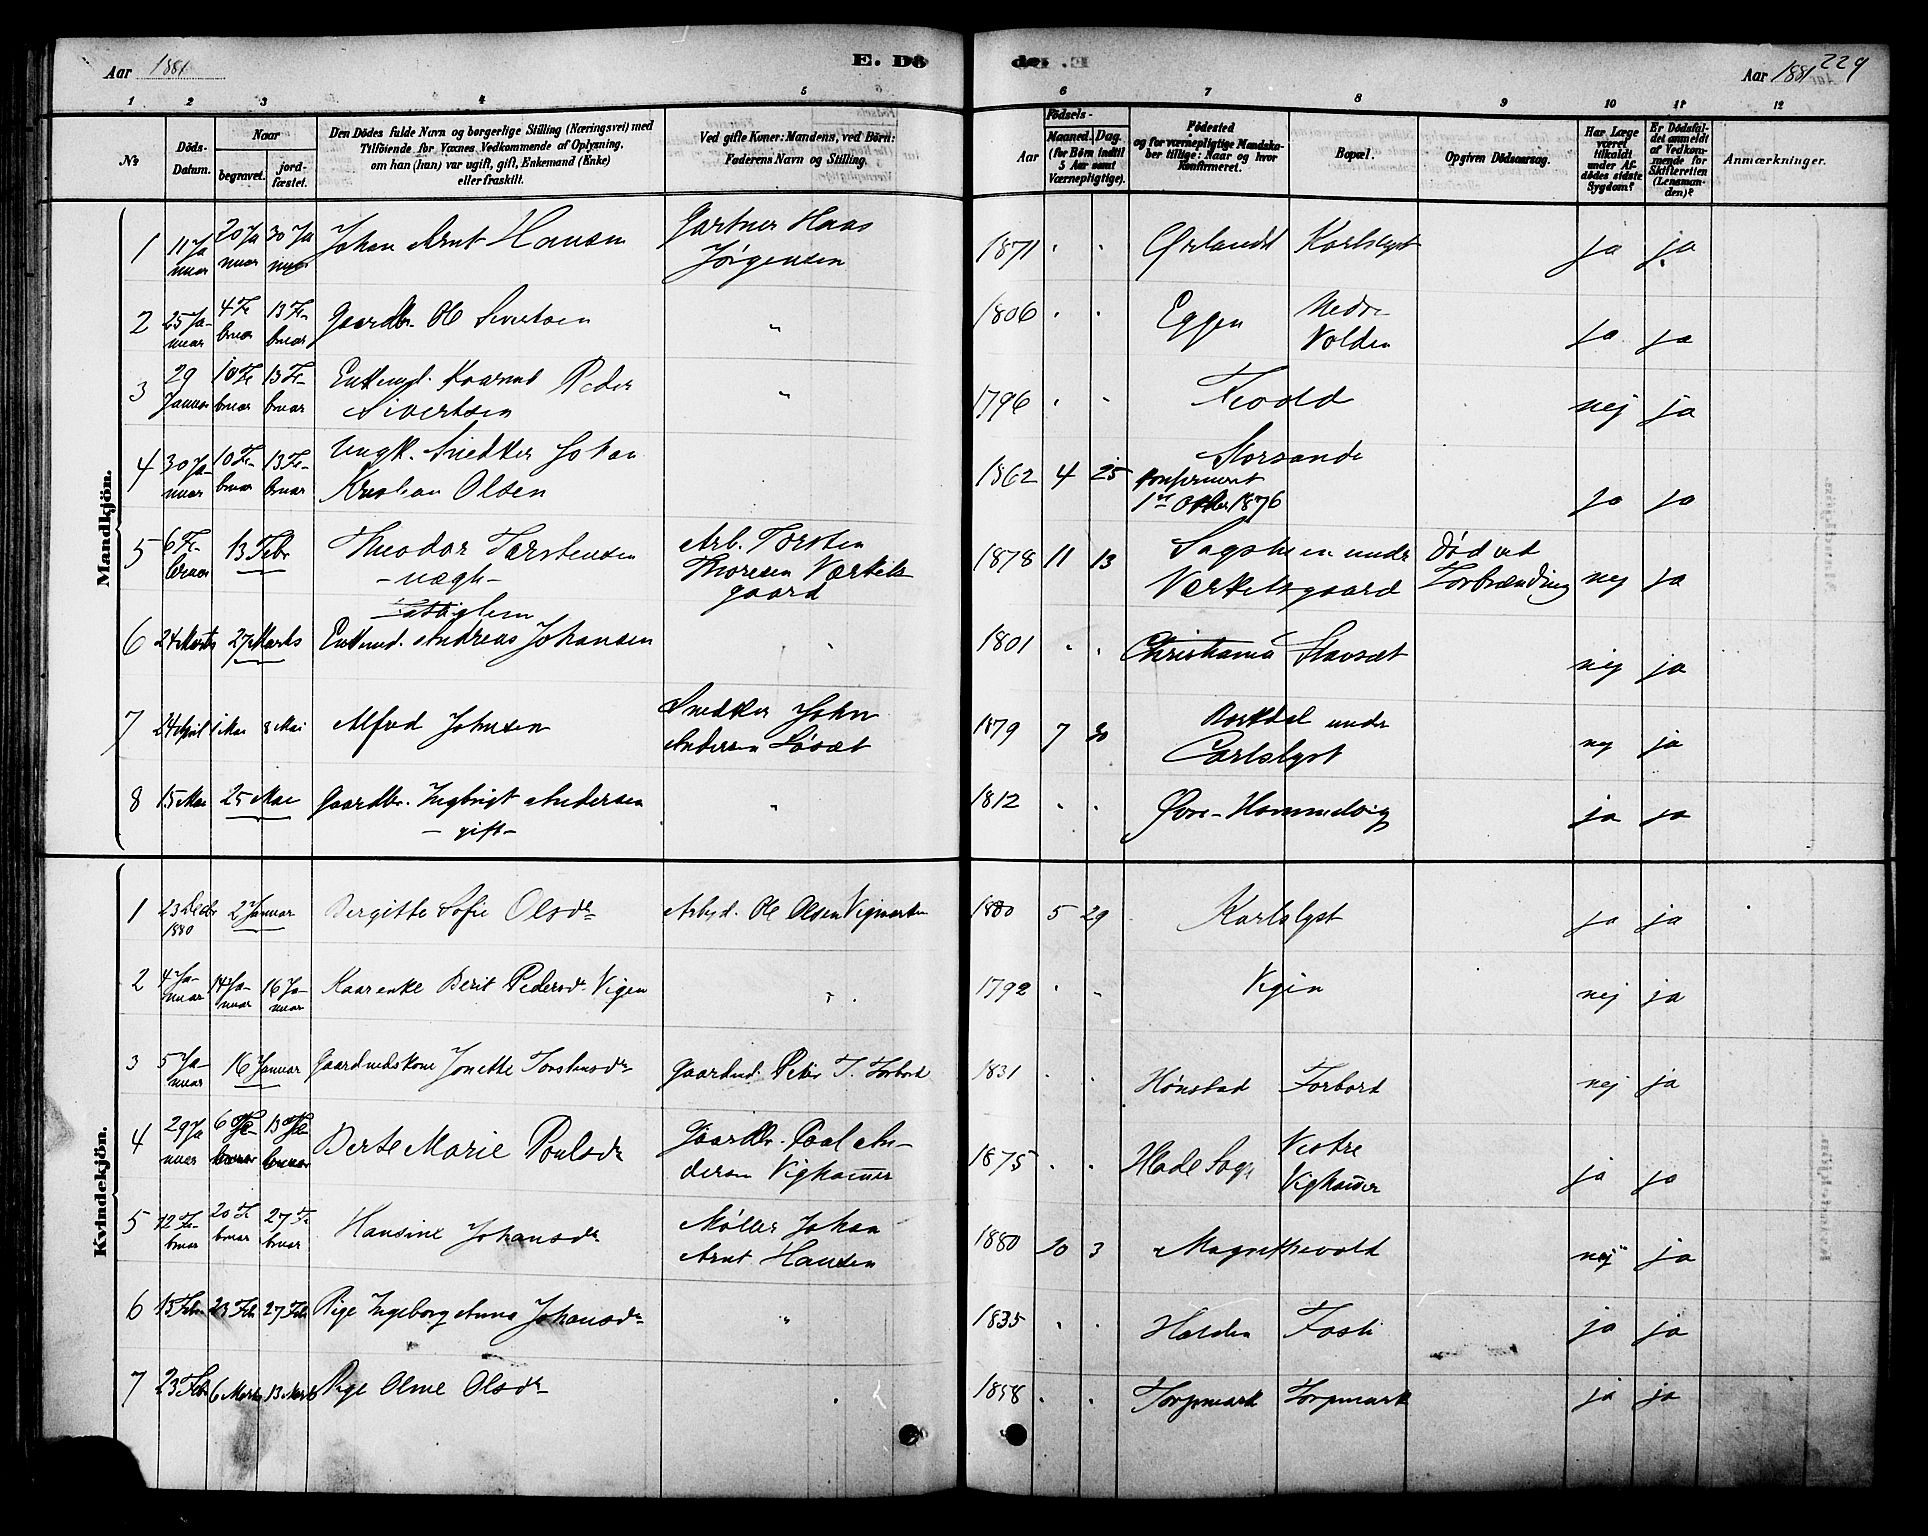 Aar 1881
E. Dö
de. E.
Aar 1881 229
1 2 3 4 5 6 7 8 9 10 11 12
No
Döds-Datum.
Naar
begravet.
jordfæstet.
Den Dödes fulde Navn og borgerlige Stilling (Næringsvei) med
Tilföiende for Voxnes Vedkommende af Oplysning,
om han (hun) var ugift, gift, Enkemand (Enke)
eller fraskilt.
Ved gifte Koner: Mandens, ved Börn:
Faderens Navn og Stilling.
Födsels-
Aar
Maaned. Dag.
(for Börn indtil
5 Aar samt
Værnepligtige).
Födested
og for værnepligtige Mandska-
ber tillige: Naar og hvor
konfirmeret.
Bopæl.
Opgiven Dödsaarsag.
Har Læge
været
tilkaldt
under Af-
dödes sidste
Sygdom?
Er Dödsfal-
det anmeldt
af Vedkom-
mende for
Skifteretten
(Lensman-
den)?
Anmærkninger.
Mandkjön.
1 11 Januar 20 Januar 30 Januar Johan Arnt Hansen Gartner Haas Jörgensen 1871 " " Ørlandet Karlslyst ja ja
2 25 Januar 4 Februar 13 Februar Gaardbr. Ole Sivertsen " 1806 " " Eggen Nedre Volden ja ja
3 29 Januar 10 Februar 13 Februar Enkemd. Kaarmd Peder Sivertsen " 1796 " " nej ja
4 30 Januar 10 Februar 13 Februar Ungk. Snedker Johan Kristian Olsen 1862 4 25 Storsande konfirmeret 1ste Oktbr 1876 ja ja
5 6 Februar 13 Febr Theodor Torstensen -uægte- Arb. Torsten Thoresen Værketsgaard 1878 11 13 Sagstuen under Værketsgaard Död ved Forbrænding nej ja
6 24 Marts 27 Marts Enkemd. Andreas Johansen " 1801 " " Christiania Stavsæt nej ja
7 24 April 1 Mai 8 Mai Alfred Johnsen Snedker John Andersen Lövæt 1879 7 30 under Carlslyst nej ja
8 15 Mai 25 Mai Gaardbr. Ingbrigt Andersen - gift - " 1812 " " Øvre-Hommelvig ja ja
Kvindekjön.
1 23 Decbr 1880 2 Januar Bergitte Sofie Olsdr Arbejd. Ole Olsen Vigmarken 1880 5 29 Karlslyst ja ja
2 4 Januar 14 Januar 16 Januar Kaarenke Berit Pedersdr. Vigen " 1792 " " Vigin nej ja
3 5 Januar 16 Januar Gaardmdskone Jonette Torstensdr Gaardmd. Peter T. Forbord 1831 " " Hönstad Forbord nej ja
4 29 Januar 6 Februar 13 Februar Berte Marie Poulsdr Gaardbr. Paal Andersen Vighammer 1875 " " Hade Sogn Vestre Vighammer ja ja
5 12 Februar 20 Februar 27 Februar Hansine Johansdr Möller Johan Arnt Hansen 1880 10 3 nej ja
6 15 Febr 23 Feb 27 Feb Pige Ingeborg Anna Johansdr " 1835 " " Halden ja ja
7 23 Feb 6 Marts 13 Marts Pige Oline Olsdr " 1858 " " Torpmark Torpmark ja ja